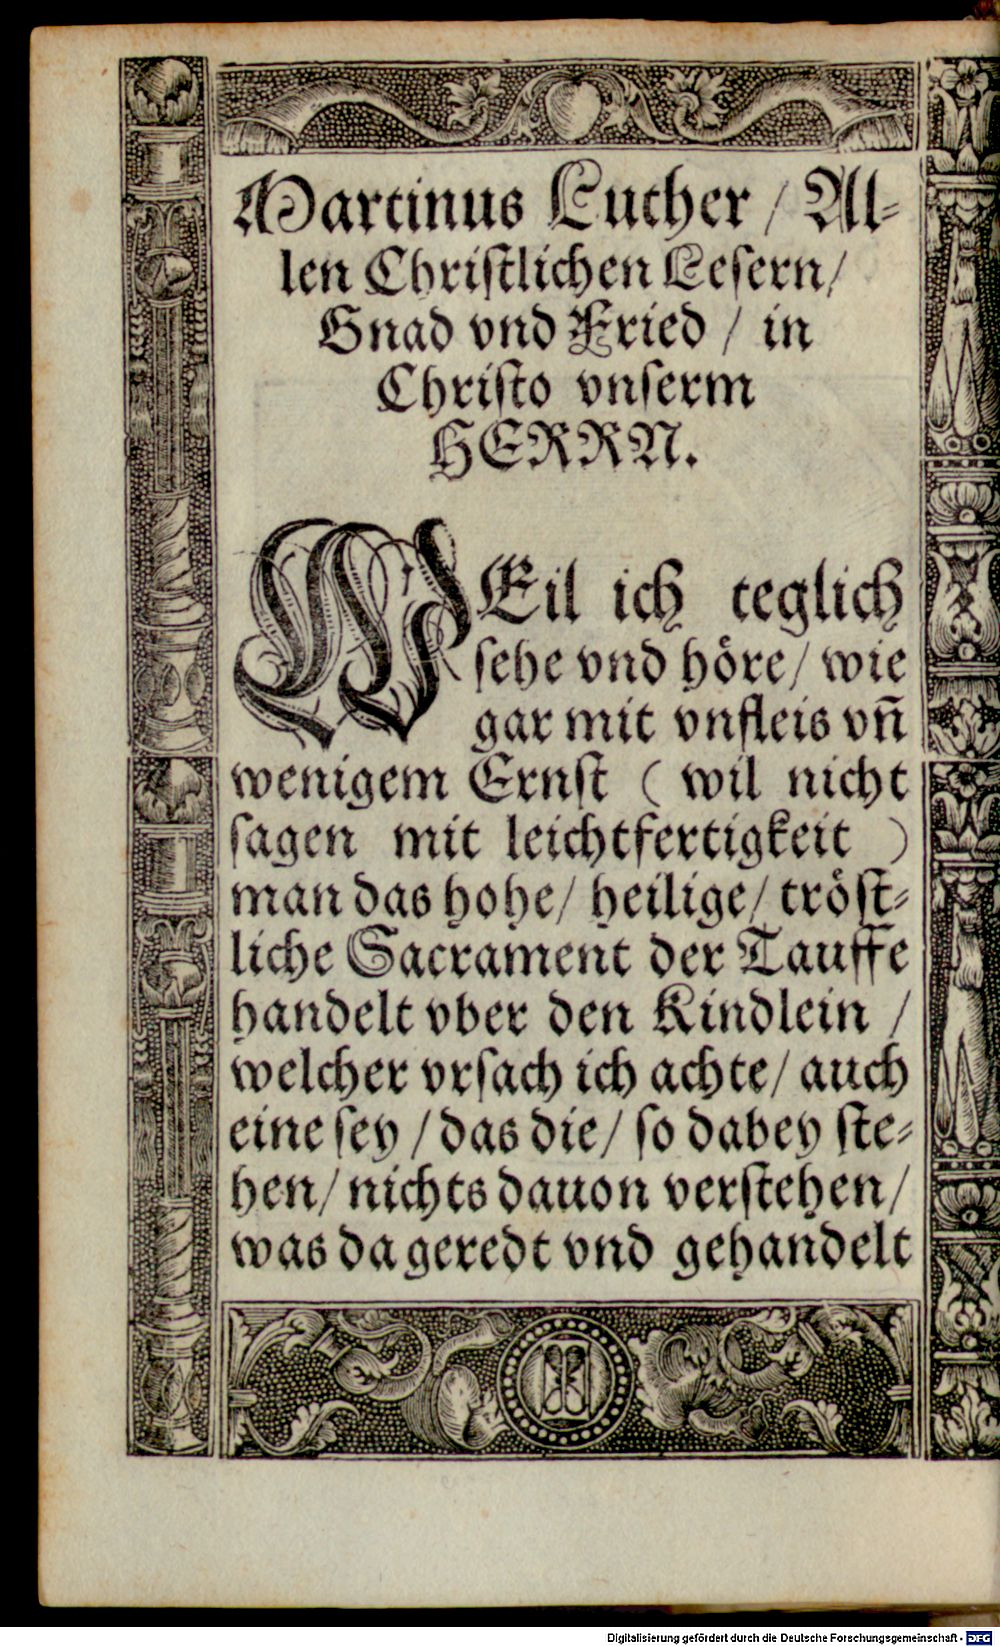 Martinus Luther / Al-
len Chriſtlichen Leſern /
Gnad vnd Fried / in
Chriſto vnſerm
HERRN.
WEil ich teglich
ſehe vnd höre / wie
gar mit vnfleis vn̄
wenigem Ernſt ( wil nicht
ſagen mit leichtfertigkeit )
man das hohe / heilige / tröſt-
liche Sacrament der Tauffe
handelt vber den Kindlein /
welcher vrſach ich achte / auch
eine ſey / das die / ſo dabey ſte-
hen / nichts dauon verſtehen /
was da geredt vnd gehandelt
Digitalisierung gefördert durch die Deutsche Forschungsgemeinschaft - DFG